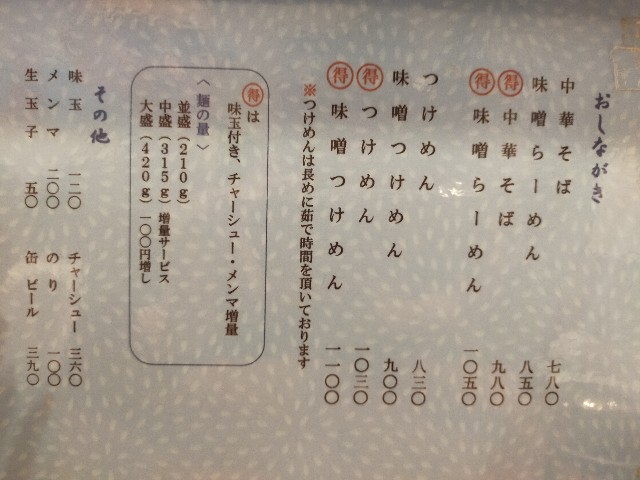 おしながき
中華そば 七八〇
味噌らーめん 八五〇
得 中華そば 九八〇
得 味噌らーめん 一〇五〇
つけめん 八三〇
味噌つけめん 九〇〇
得 つけめん 一〇三〇
得 味噌つけめん 一一〇〇
※つけめんは長めに茹で時間を頂いております
得は
味玉付き、チャーシュー・メンマ増量
〈麺の量〉
並盛(210g)
中盛(315g)増量サービス
大盛(420g)一〇〇円増し
その他
味玉 一二〇
メンマ 二〇〇
生玉子 五〇
チャーシュー 三六〇
のり 一〇〇
缶ビール 三九〇